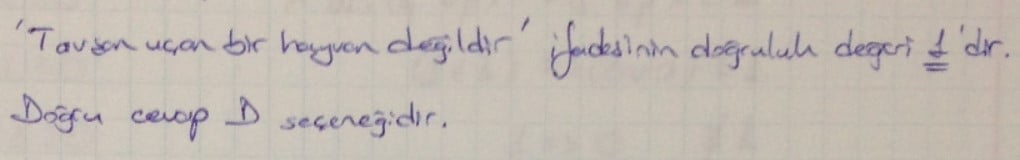 'Tavşan uçan bir hayvan değildir' ifadesinin doğruluk değeri 1'dir.
Doğru cevap D seçeneğidir.